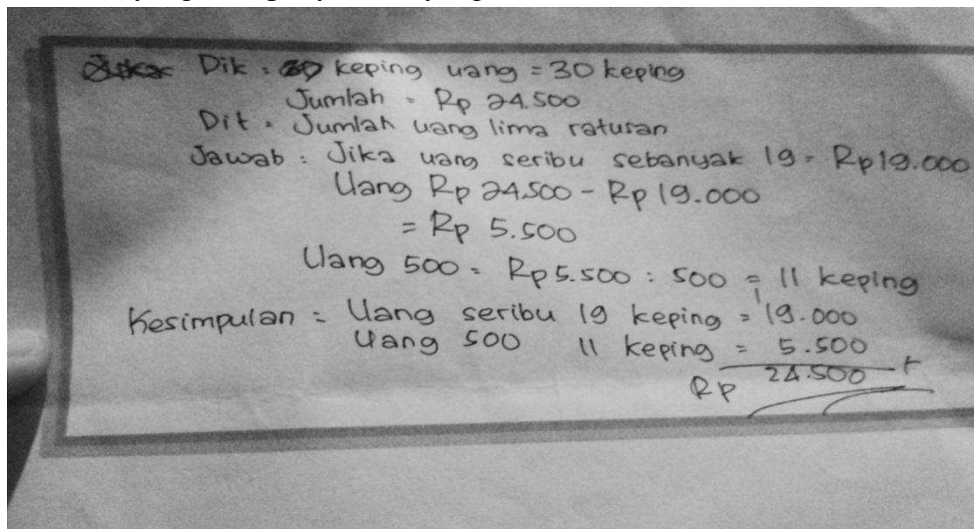 Dik : 30 keping uang = 30 keping
Jumlah = Rp 24.500
Dit : Jumlah uang lima ratusan
Jawab : Jika uang seribu sebanyak 19 = Rp 19.000
Uang Rp 24.500 - Rp 19.000
= Rp 5.500
Uang 500 = Rp 5.500 : 500 = 11 keping
Kesimpulan : Uang seribu 19 keping = 19.000
Uang 500 11 keping = 5.500 +
Rp 24.500